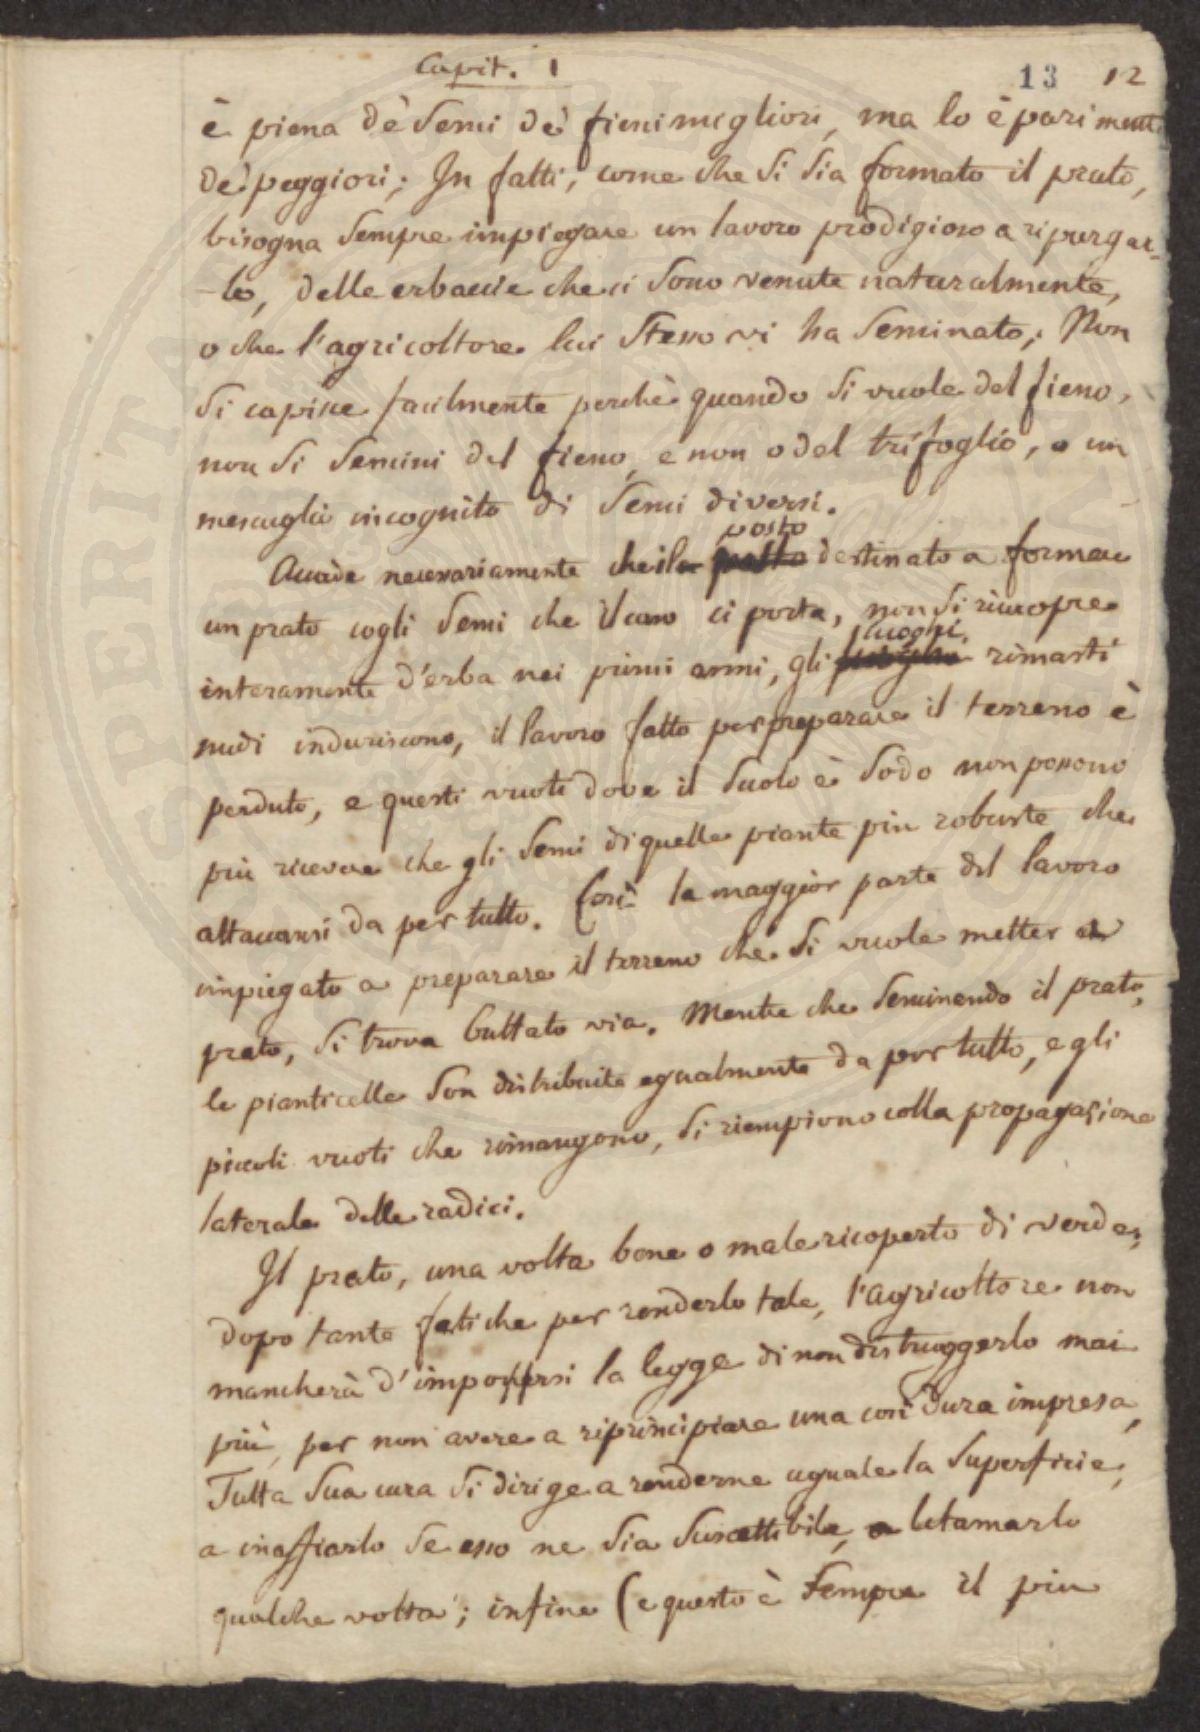 Capit. 1
13 12
è piena dè Semi dè fieni migliori, ma lo è pari menti
dè peggiori; In fatti, come che si sia formato il prato,
bisogna sempre impiegare un lavoro prodigioso a ripurgar-
-lo, delle erbaccie che ci sono venute naturalmente,
o che l'agricoltore lui stesso vi ha seminato; Non
si capisce facilmente perchè quando si vuole del fieno,
non si semini del fieno, e non o del trifoglio, o un
mescuglio incognito di semi diversi.
posto
Accade necessariamente che il destinato a formare
un prato cogli semi che il caso ci porta, non si riucopre
luoghi
interamente d'erba nei primi anni, gli rimasti
nudi induriscono, il lavoro fatto per preparare il terreno è
perduto, e questi vuoti dove il suolo è sodo non possono
più ricevere che gli semi di quelle piante più robuste che
attaccansi da per tutto. Così la maggior parte del lavoro
impiegato a preparare il terreno che si vuole metter a
prato, si trova buttato via. Mentre che seminando il prato,
le pianticelle son distribuite egualmente da per tutto, e gli
piccoli vuoti che rimangono, si riempiono colla propagazione
laterale delle radici.
Il prato, una volta bene o male ricoperto di verde,
dopo tante fatiche per renderlo tale, l'agricoltore non
mancherà d'imporsi la legge di non distruggerlo mai
più, per non avere a riprincipiare una così dura impresa,
Tutta sua cura si dirige a renderne uguale la superficie,
a inaffiarlo se esso ne sia suscettibile, a letamarlo
qualche volta; infine (e questo è sempre il più